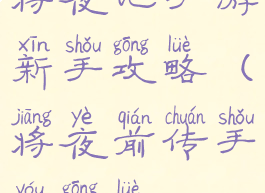 将夜
游
xīn shǒu gōng lüè
新手攻略（
jiāng yè qián chuán shǒu
将夜前传手
yóu gōng lüè